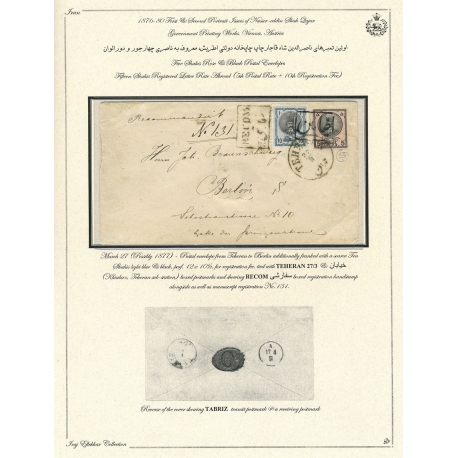 Iran
1876-80 First & Second Portrait Issues of Nasser-eddin Shah Qajar
Government Printing Works, Vienna, Austria
اولین تمبرهای ناصرالدین شاه قاجار چاپ چاپخانه دولتی اطریش معروف به ناصری چهارجور و دورالوان
Five Shahis Rose & Black Postal Envelopes
Fifteen Shahis Registered Letter Rate Abroad (5sh Postal Rate + 10sh Registration Fee)
Recommandirt
No 131
RECOM
TEHERAN
Herrn Joh.
Berlin
No 10
March 27 (Possibly 1877) - Postal envelope from Teheran to Berlin additionally franked with a scarce Ten
Shahis light blue & black, perf. 12 x 10½, for registration fee, tied with TEHERAN 27/3 & خیابان
(Khiaban, Teheran sub-station) boxed postmarks and showing RECOM سفارشی boxed registration handstamp
alongside as well as manuscript registration No. 131.
Reverse of the cover showing TABRIZ transit postmark & a receiving postmark
Iraj Eftekhar Collection